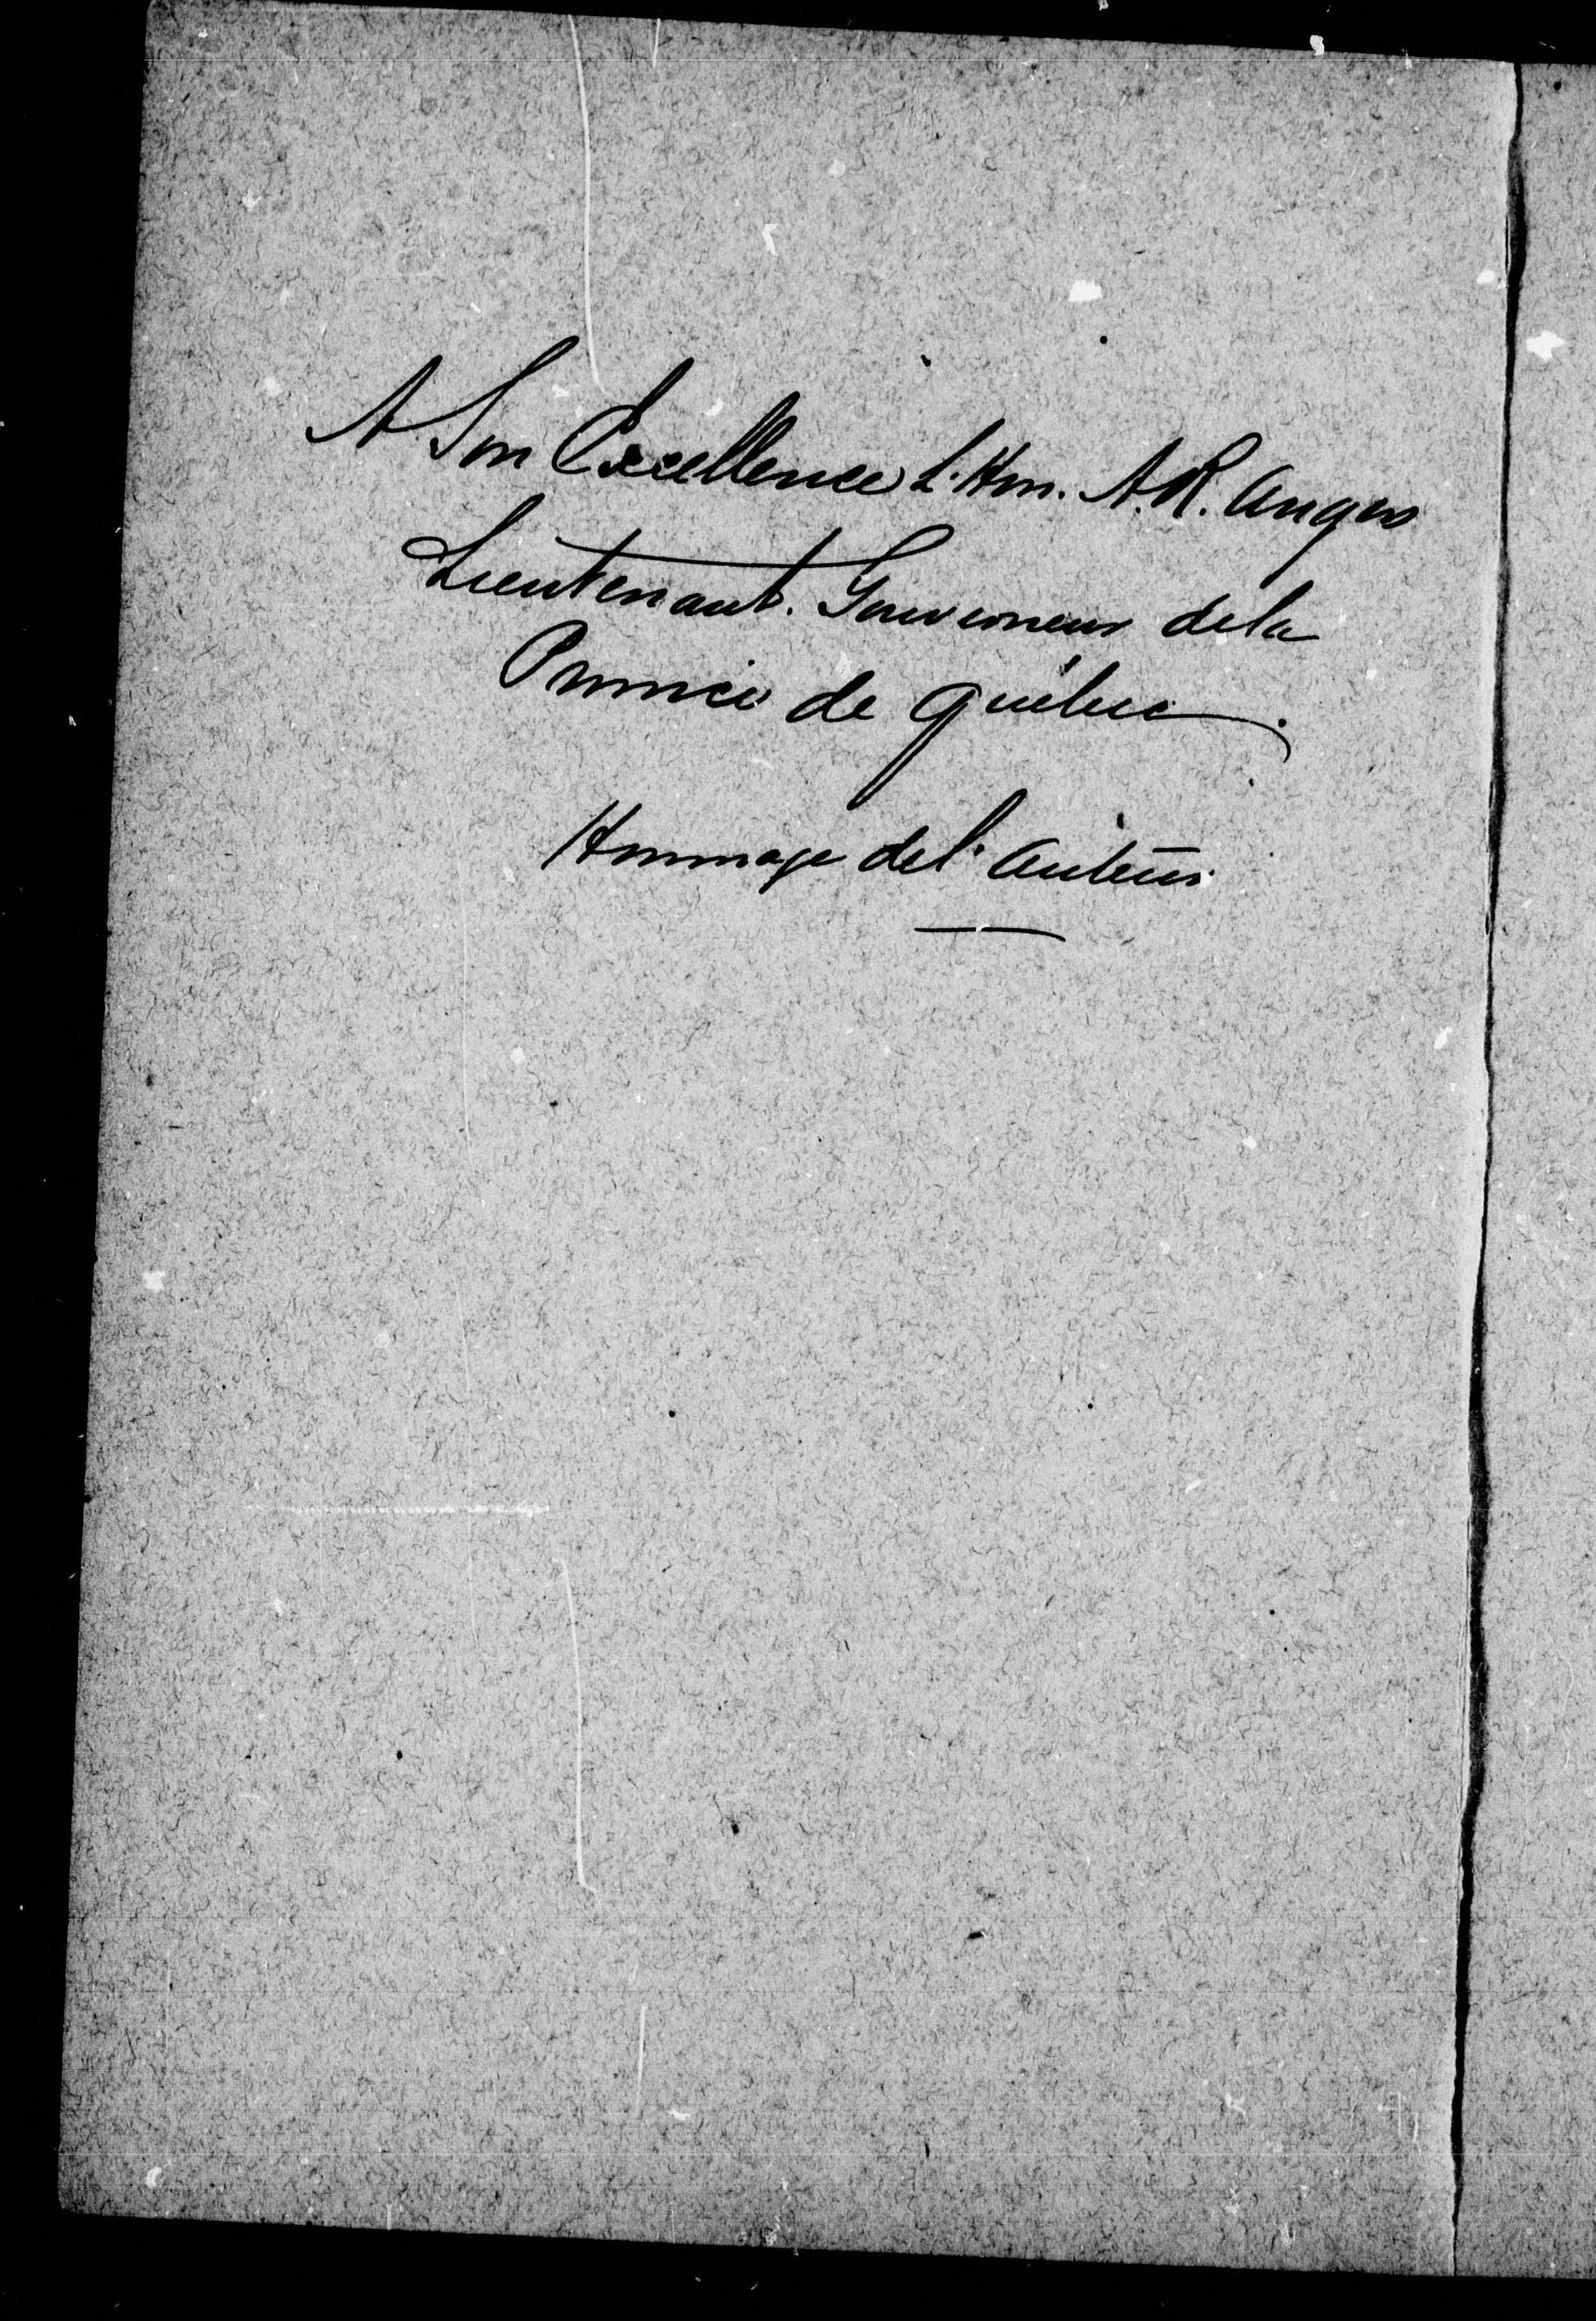 A Son Excellence L'Hon. A.R. Angers
Lieutenant. Gouverneur de la
Province de Québec.
Hommage de l'auteur